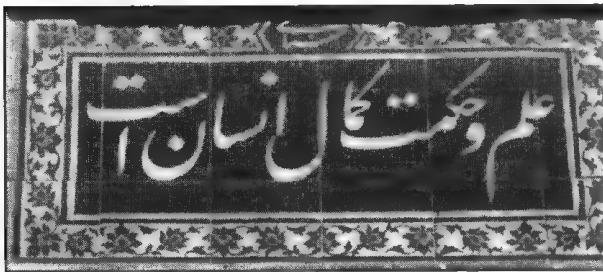 علم و حکمت کمال انسان است